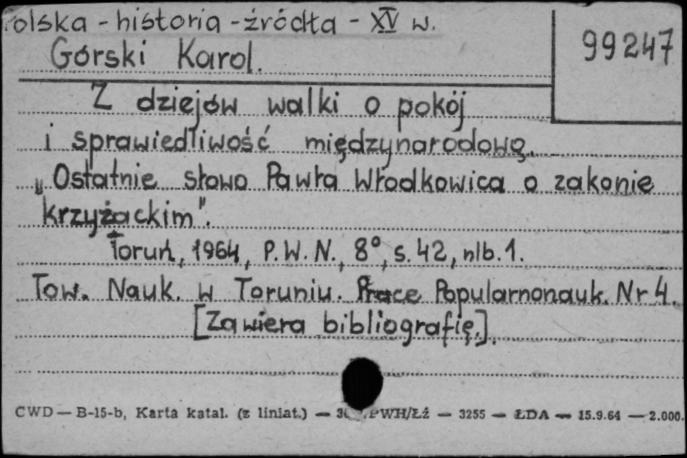 Polska - historia - źródła - XV w.
99247
Górski Karol.
Z dziejów walki o pokój
i sprawiedliwość międzynarodową.
„Ostatnie słowo Pawła Włodkowica o zakonie
krzyżackim".
Toruń, 1964, P.W.N., 8°, s. 42, nlb. 1.
Tow. Nauk. w Toruniu. Prace Popularnonauk. Nr 4.
[Zawiera bibliografię.].
CWD — B-15-b, Karta katal. (z liniat.) — PWH/Łź — 3255 — ŁDA — 15.9.64 — 2.000.